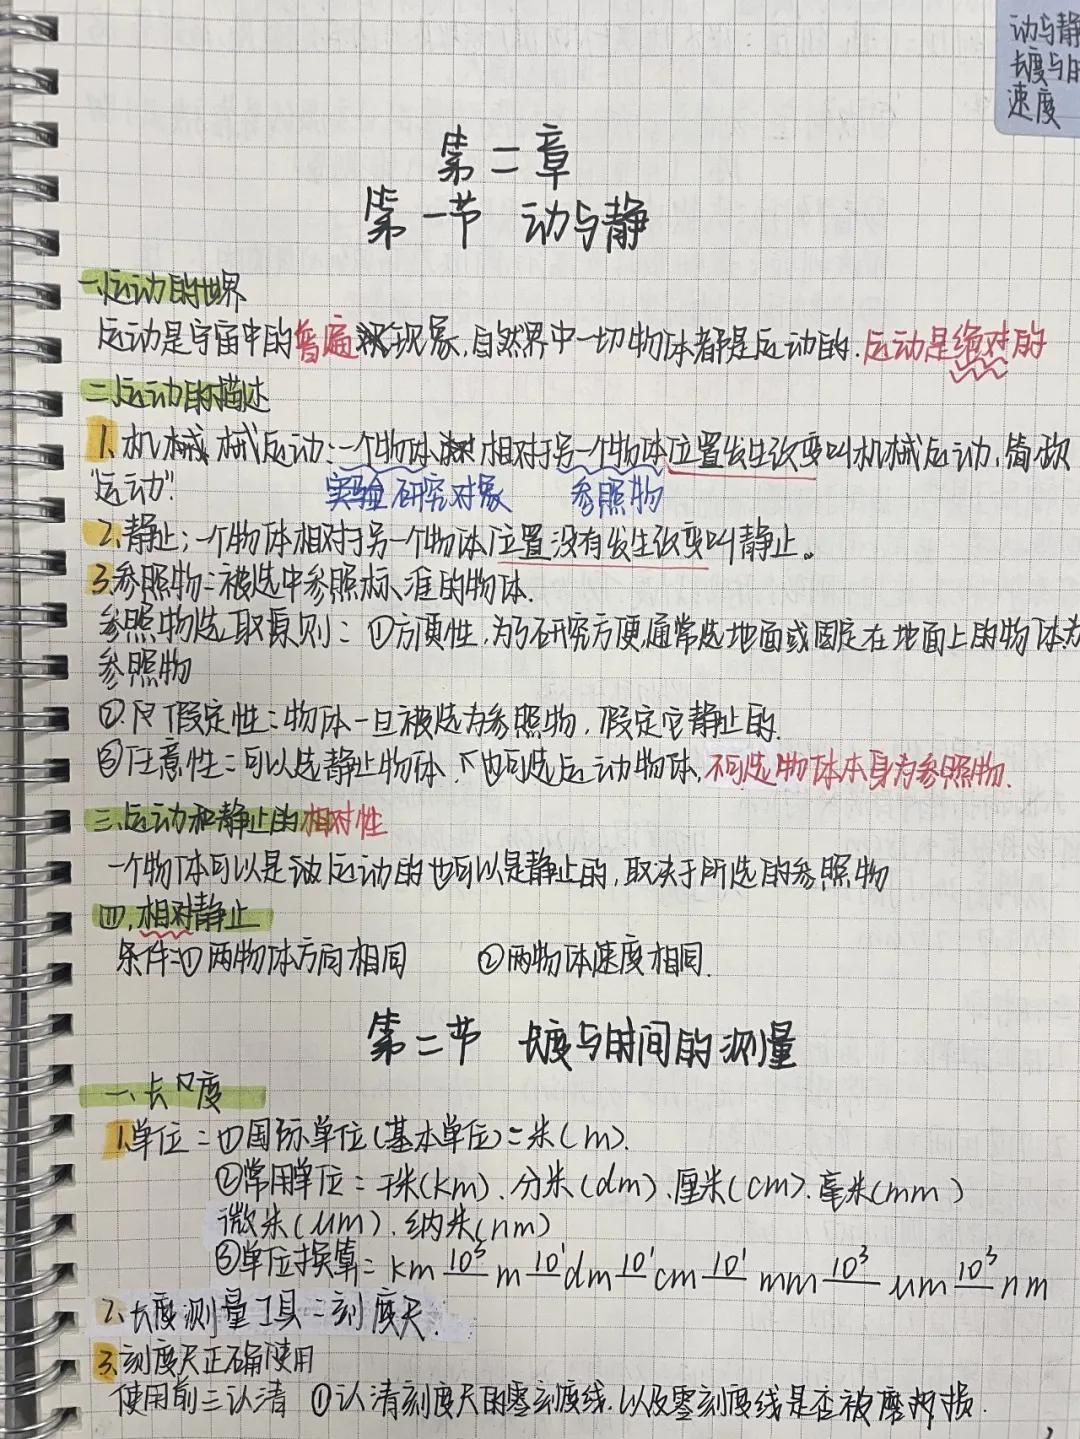 动与静
长度与时
速度
第二章
第一节 动与静
一.运动的世界
运动是宇宙中的普遍现象,自然界中一切物体都是运动的.运动是绝对的
二.运动的描述
1.机械 械运动:一个物体 相对于另一个物体位置发生改变叫机械运动,简称
"运动".
实验 研究对象 参照物
2.静止:一个物体相对于另一个物体位置没有发生改变叫静止。
3.参照物:被选中参照标准的物体.
参照物选取原则:①方便性,为了研究方便,通常选地面或固定在地面上的物体为
参照物
②假定性:物体一旦被选为参照物,假定它静止的.
③任意性:可以选静止物体,也可选运动物体,不可选物体本身为参照物.
三.运动和静止的相对性
一个物体可以是运动的也可以是静止的,取决于所选的参照物
四.相对静止
条件:①两物体方向相同 ②两物体速度相同.
第二节 长度与时间的测量
一.长尺度
1.单位:①国际单位(基本单位):米(m).
②常用单位:千米(km)、分米(dm)、厘米(cm)、毫米(mm)
微米(μm)、纳米(nm)
③单位换算:km 10³ m 10¹ dm 10¹ cm 10¹ mm 10³ μm 10³ nm
2.长度测量工具:刻度尺.
3.刻度尺正确使用
使用前三认清 ①认清刻度尺的零刻度线,以及零刻度线是否被磨损.